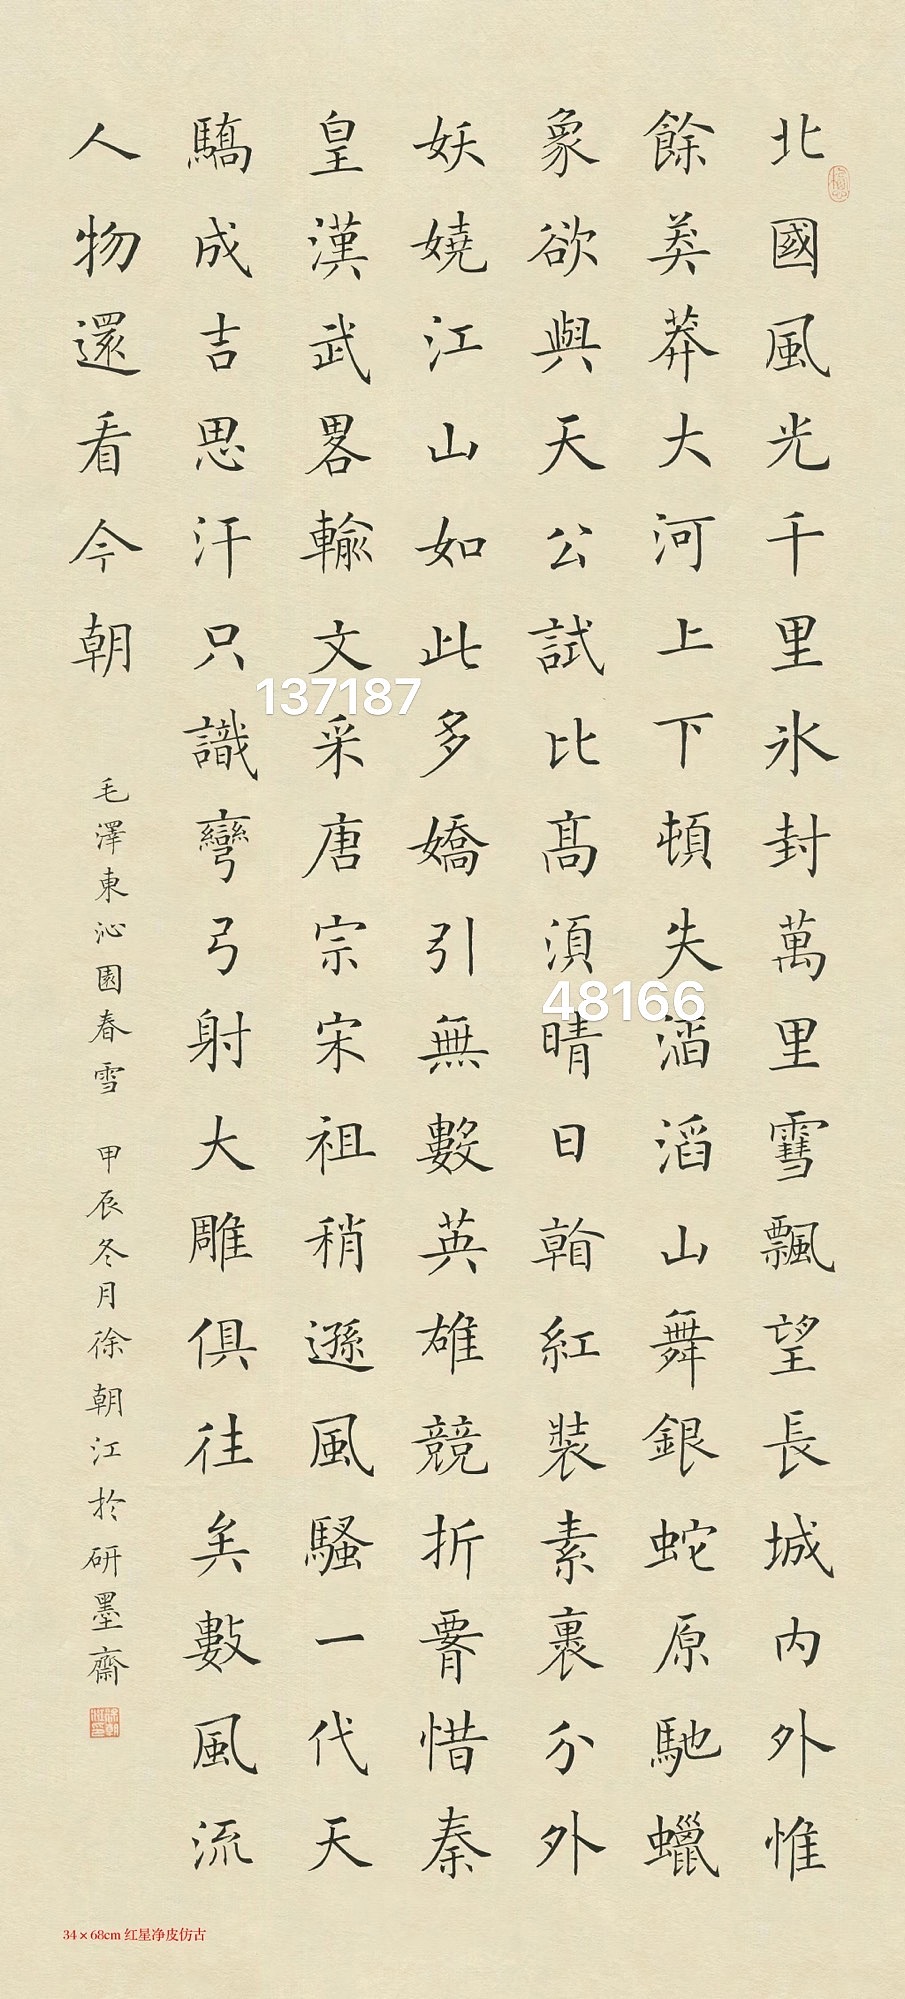 北國風光千里氷封萬里雪飄望長城內外惟
餘莽莽大河上下頓失滔滔山舞銀蛇原馳蠟
象欲與天公試比髙湏晴日看紅裝素裹分外
妖嬈江山如此多嬌引無數英雄競折腰惜秦
皇漢武畧輸文采唐宗宋祖稍遜風騷一代天
驕成吉思汗只識彎弓射大雕俱往矣數風流
人物還看今朝
毛澤東沁園春雪 甲辰冬月徐朝江於研墨齋
137187
48166
34×68cm 红星净皮仿古